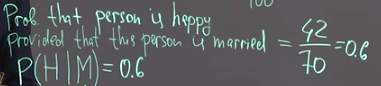 100
Prob. that person is happy
provided that this person is married = 42/70 = 0.6
P(H|M) = 0.6